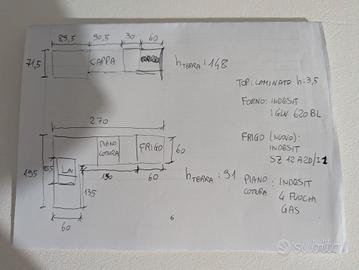 89,5 90,5 30 60
71,5
CAPPA
h TERRA: 148
TOP: LAMINATO h:3,5
FORNO: INDESIT
IGW 620 BL
270
PIANO
COTTURA
FRIGO
60
FRIGO (NUOVO):
INDESIT
SZ 12 A2D/I 1
195
60
h TERRA: 91
PIANO COTTURA: INDESIT
4 FUOCHI
GAS
135
60
6
subito.it